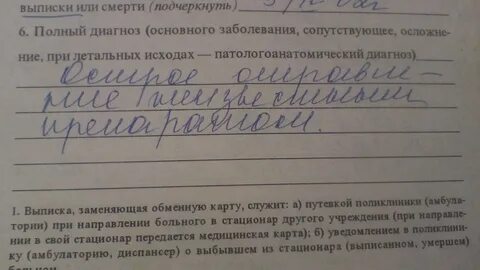 выписки или смерти (подчеркнуть)
6. Полный диагноз (основного заболевания, сопутствующее, осложне-
ние, при летальных исходах — патологоанатомический диагноз)
Острое отравле-
ние неизвестным
препаратом.
1. Выписка, заменяющая обменную карту, служит: а) путевкой поликлиники (амбула-
тории) при направлении больного в стационар другого учреждения (при направле-
нии в свой стационар передается медицинская карта); б) уведомлением в поликлини-
ку (амбулаторию, диспансер) о выбывшем из стационара (выписанном, умершем)
больном